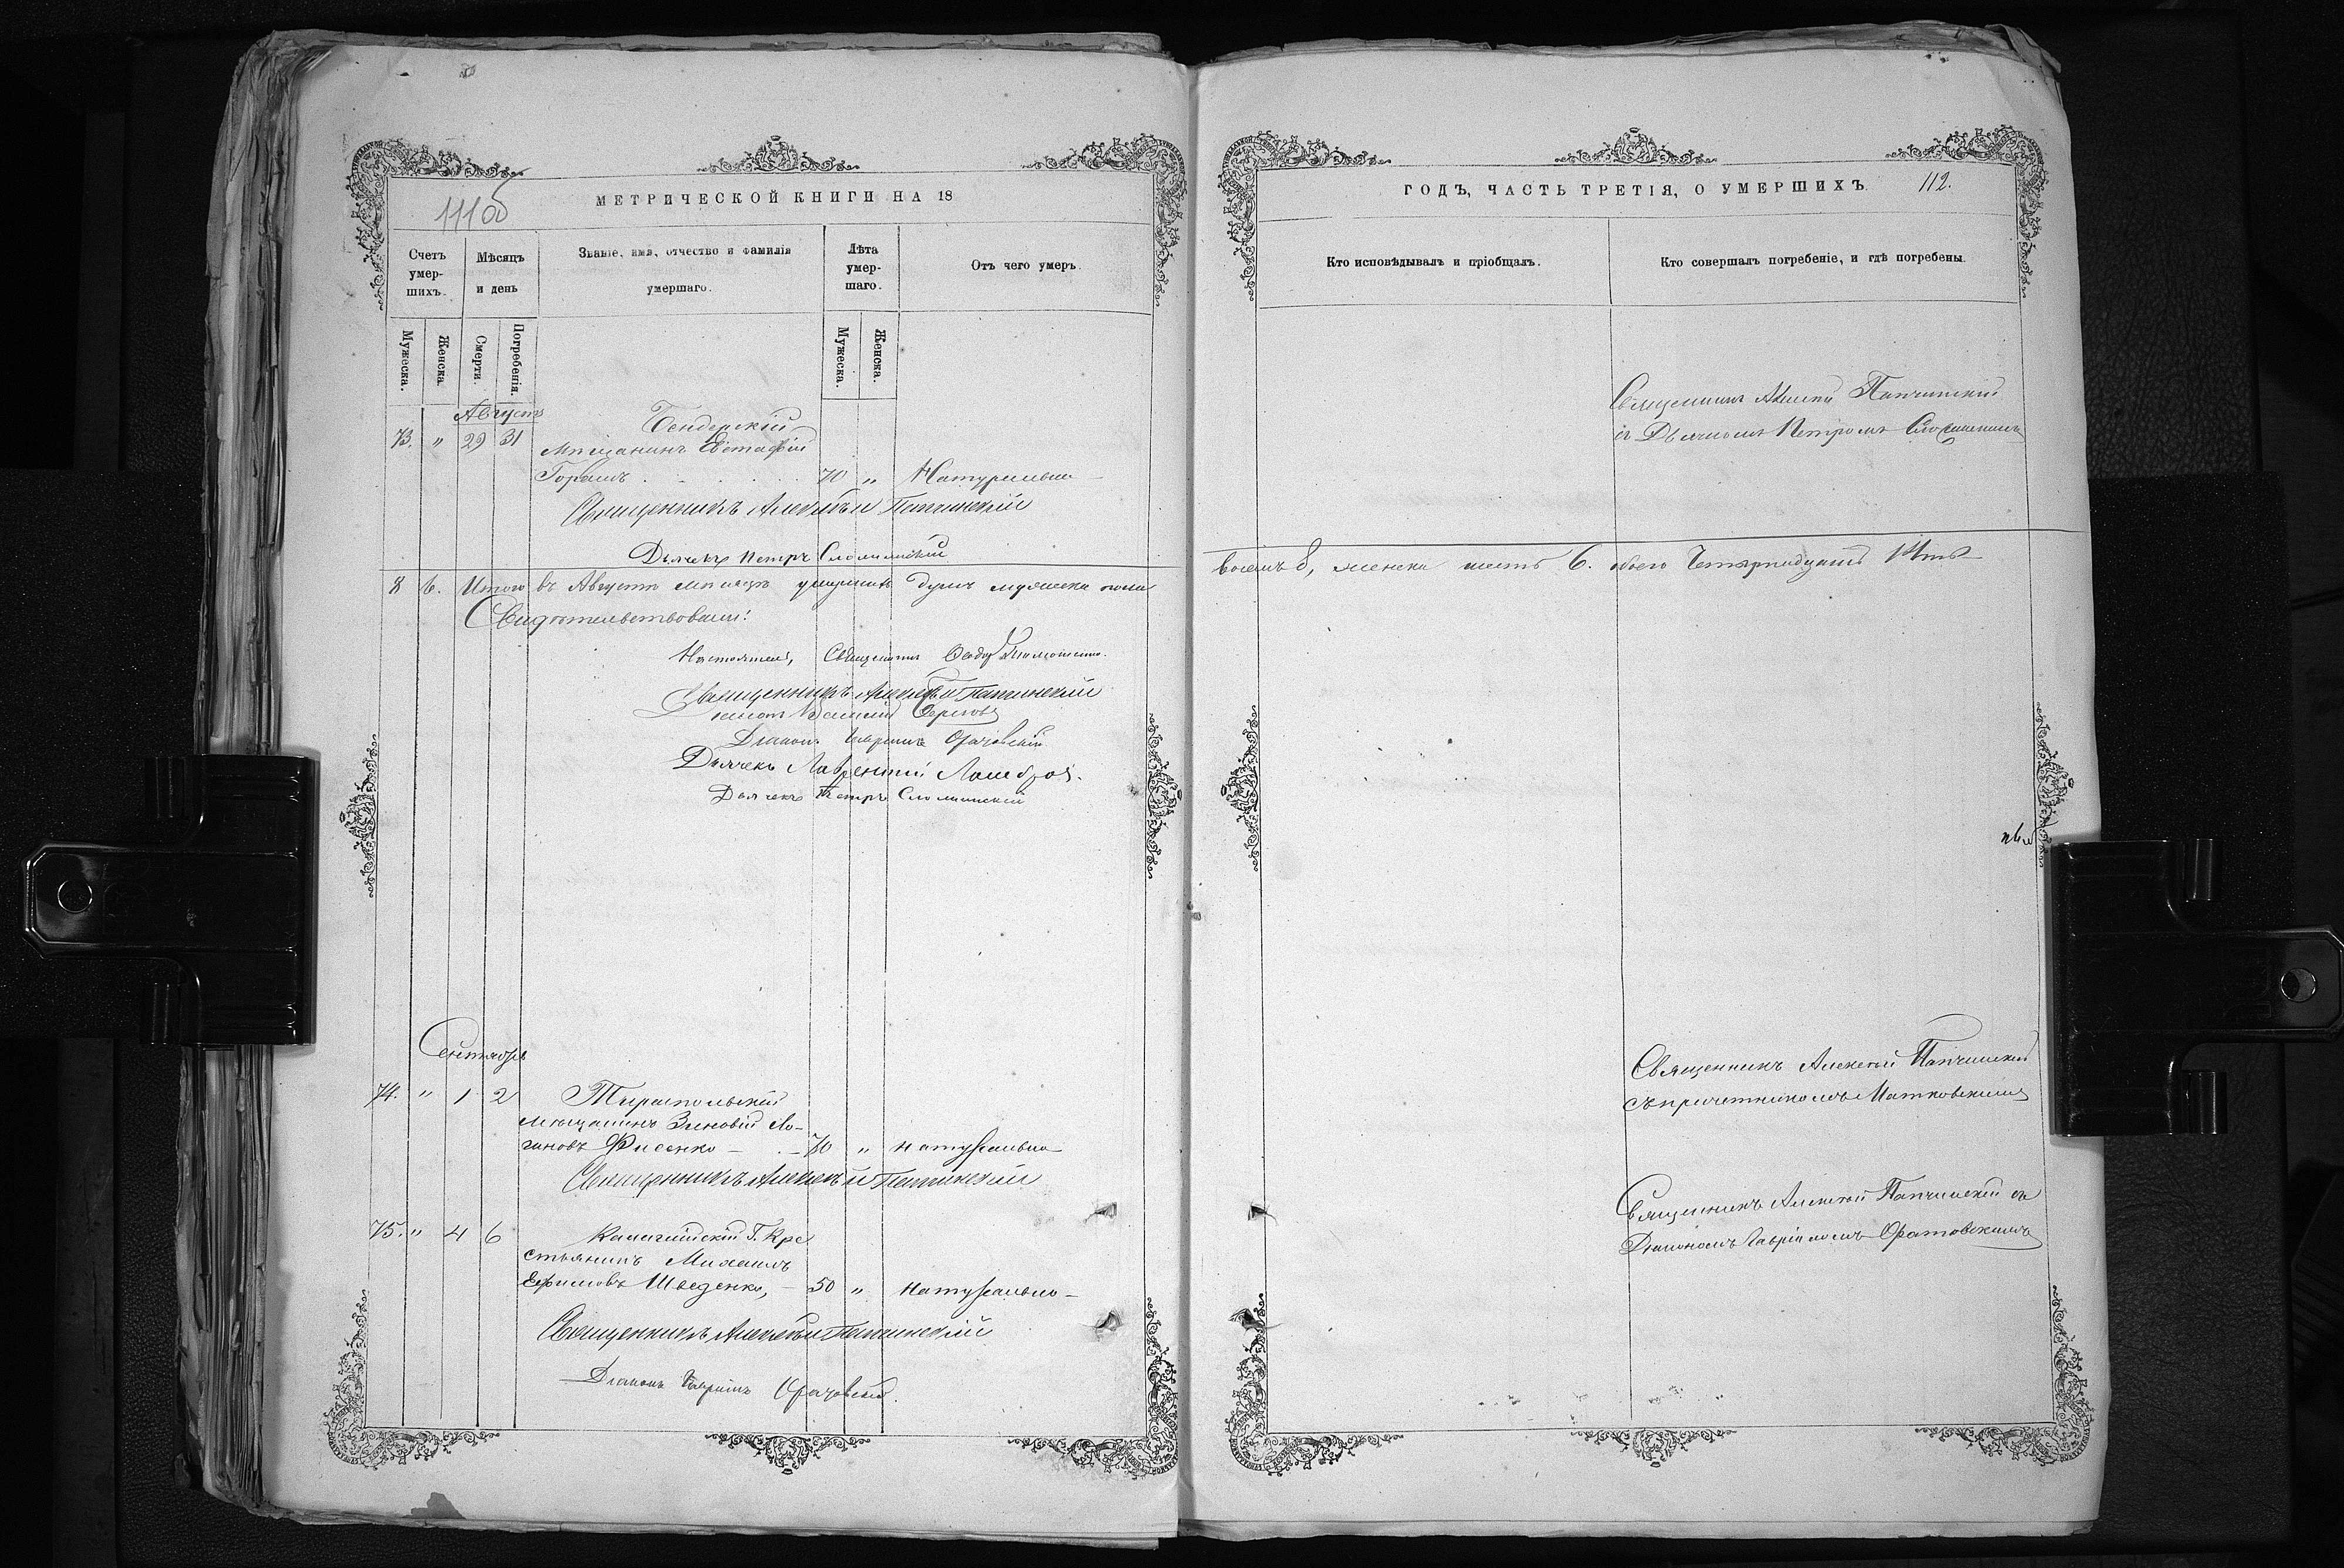 111 об
МЕТРИЧЕСКОЙ КНИГИ НА 18
Счетъ умер-шихъ.
Мѣсяцъ и день
Званіе, имя, отчество и фамилія умершаго.
Лѣта умер-шаго.
Отъ чего умеръ.
Мужеска.
Женска.
Смерти.
Погребенія.
Мужеска.
Женска.
Августъ
73. " 29 31 Бендерскій
мѣщанинъ Евстафій
70 " Натурально
Священникъ Алексѣй Папчинскій
Дьячекъ Петръ Сломинскій
8 6. Итого въ Августѣ мѣсяцѣ умершихъ душъ мужеска пола
Свидѣтельствовали:
Настоятель, Священникъ
Священникъ Алексѣй Папчинскій
Василій
Діаконъ Гавріилъ Оратовскій
Дьячекъ Лаврентій
Дьячекъ Петръ Сломинскій
Сентябрь
74. " 1 2 Тираспольскій
мѣщанинъ Зиновій Ло-
гиновъ Фисенко 70 " натурально
Священникъ Алексѣй Папчинскій
75. " 4 6 Г. Кре
стьянинъ Михаилъ
Ефимовъ Шведенко, 50 " натурально
Священникъ Алексѣй Папчинскій
Діаконъ Гавріилъ Оратовскій.
ГОДЪ, ЧАСТЬ ТРЕТІЯ, О УМЕРШИХЪ. 112.
Кто исповѣдывалъ и пріобщалъ.
Кто совершалъ погребеніе, и гдѣ погребены.
Священникъ Алексѣй Папчинскій
съ Дьячкомъ Петромъ Сломинскимъ
восемь 8, женска шесть 6. обоего Четырнадцать 14ть
Священникъ Алексѣй Папчинскій
съ причетникомъ Матковскимъ
Священникъ Алексѣй Папчинскій съ
Діакономъ Гавріиломъ Оратовскимъ